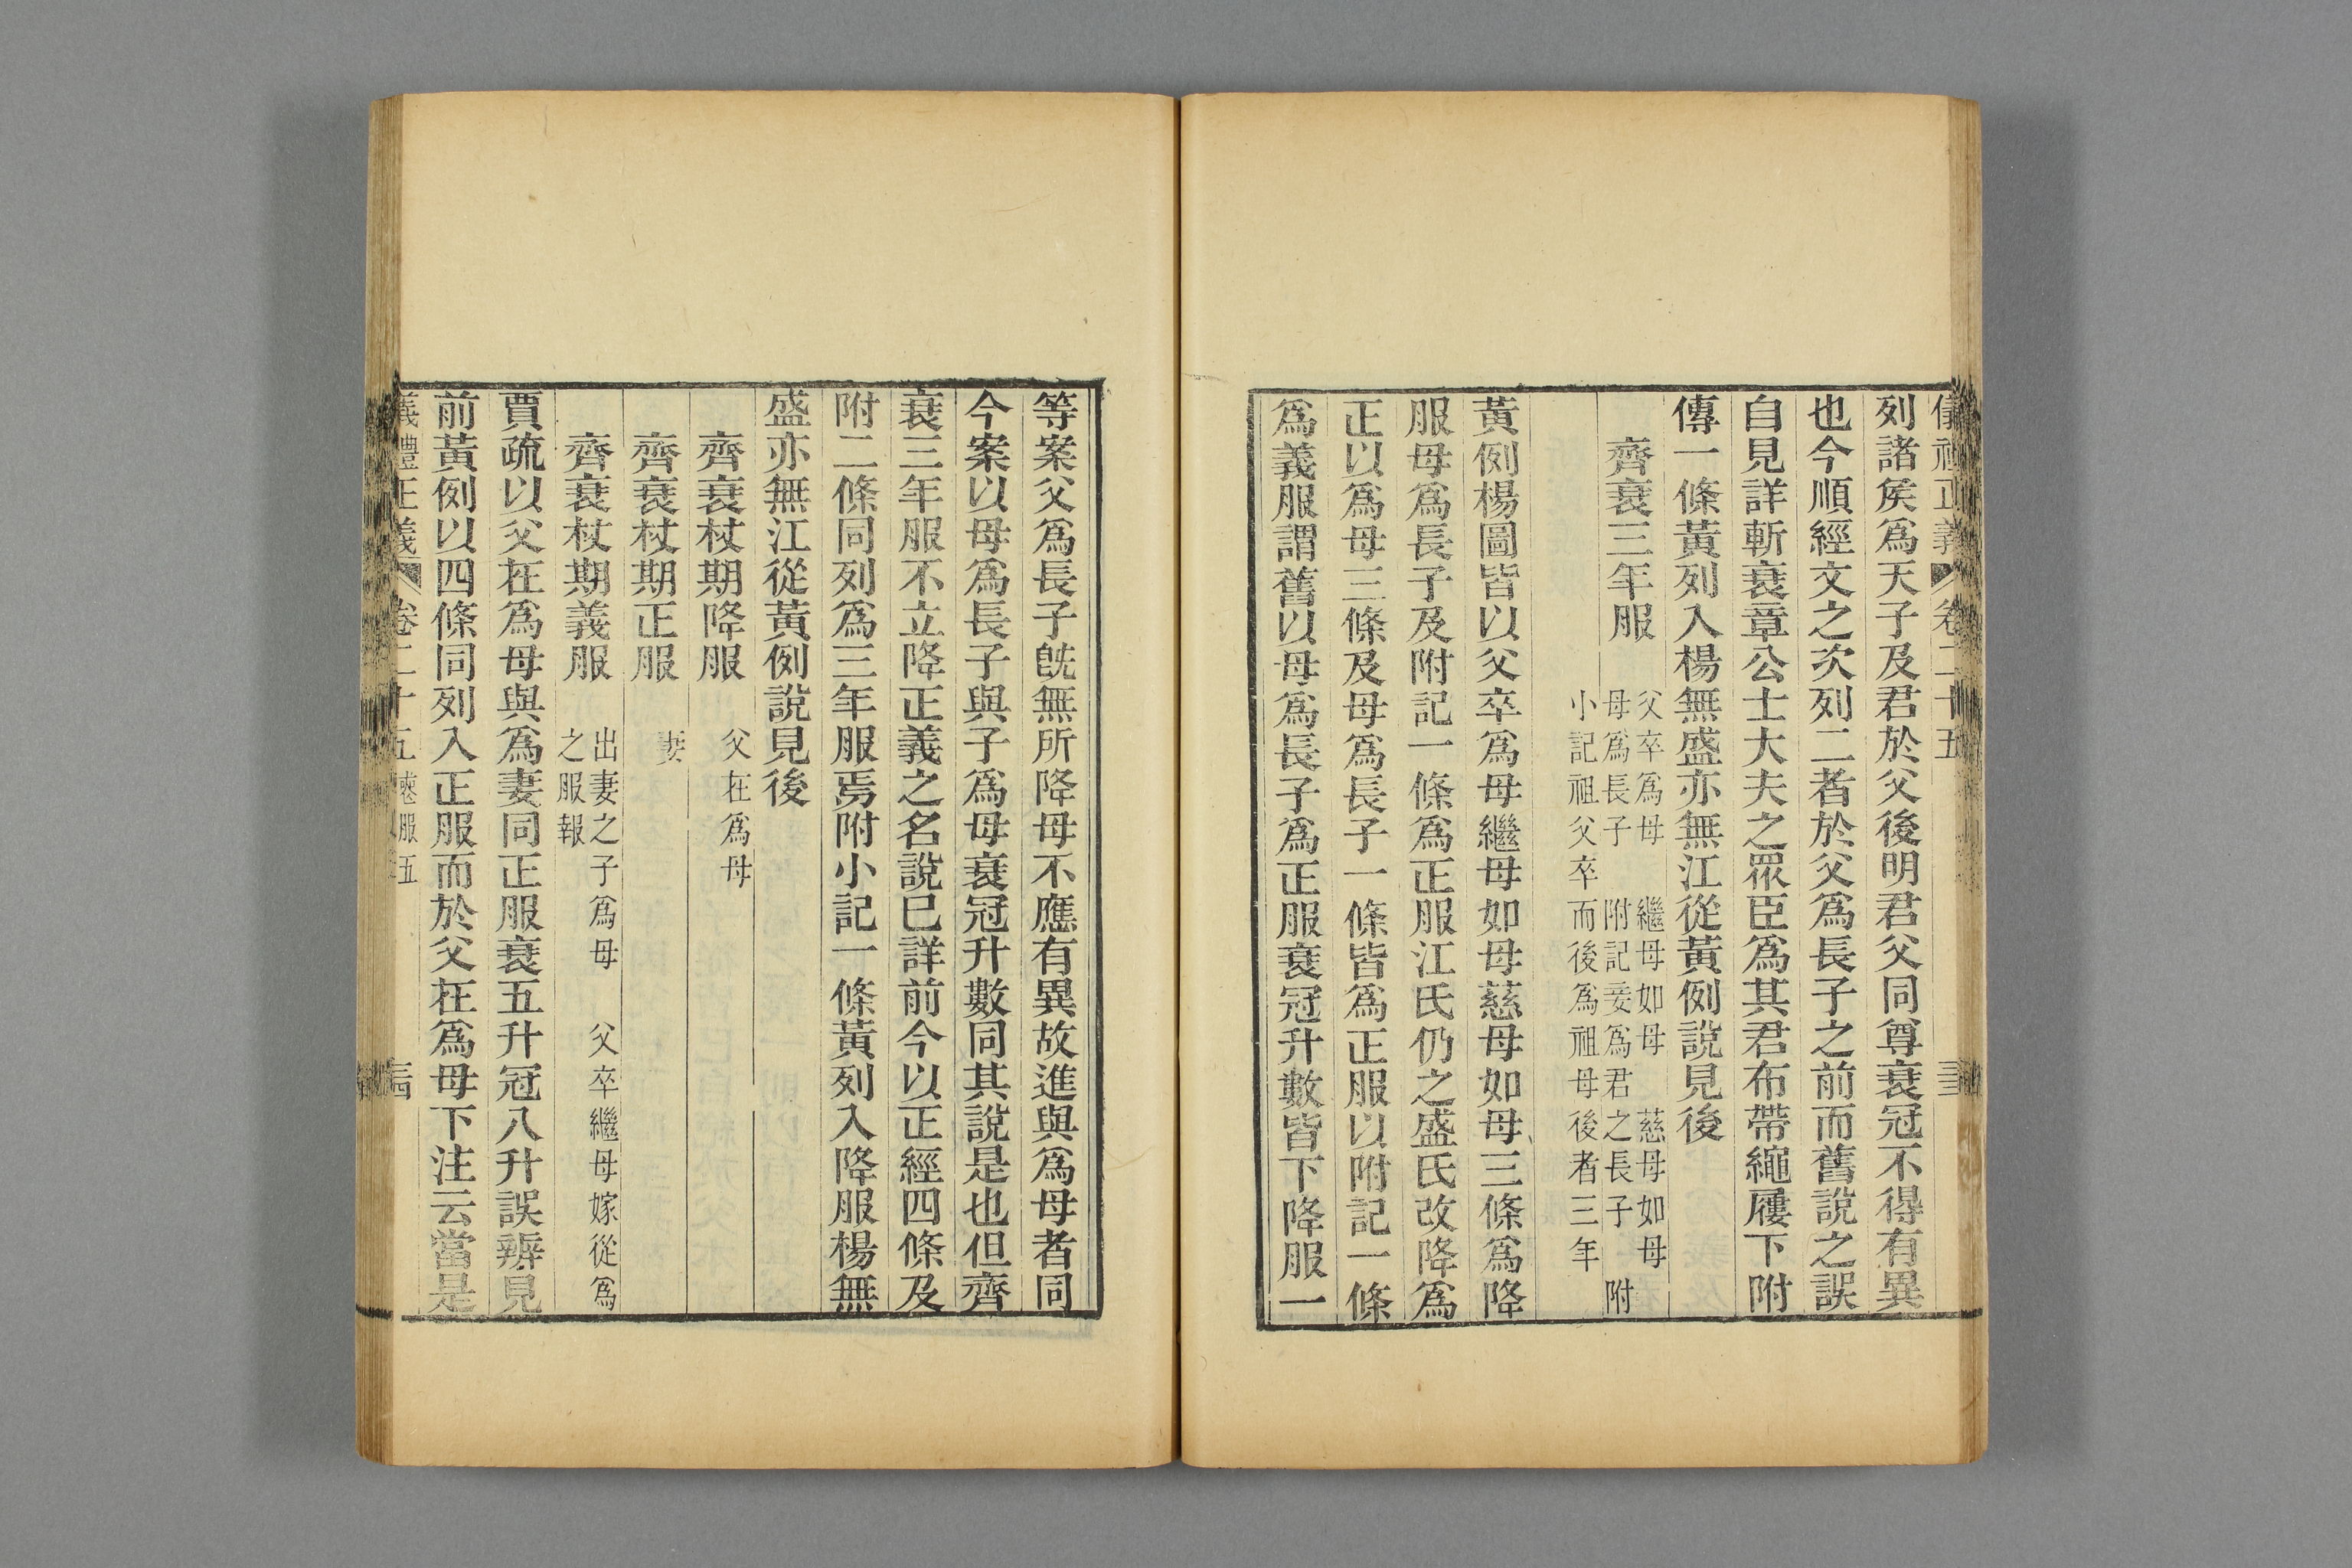 儀禮正義 卷二十五
列諸矦爲天子及君於父後明君父同尊衰冠不得有異
也今順經文之次列二者於父爲長子之前而舊說之誤
自見詳斬衰章公士大夫之眾臣爲其君布帶繩屨下附
傳一條黃列入楊無盛亦無江從黃例說見後
齊衰三年服
父卒爲母 繼母如母 慈母如母
母爲長子 附記妾爲君之長子 附
小記祖父卒而後爲祖母後者三年
黃例楊圖皆以父卒爲母繼母如母慈母如母三條爲降
服母爲長子及附記一條爲正服江氏仍之盛氏改降爲
正以爲母三條及母爲長子一條皆爲正服以附記一條
爲義服謂舊以母爲長子爲正服衰冠升數皆下降服一
等案父爲長子旣無所降母不應有異故進與爲母者同
今案以母爲長子與子爲母衰冠升數同其說是也但齊
衰三年服不立降正義之名說已詳前今以正經四條及
附二條同列爲三年服焉附小記一條黃列入降服楊無
盛亦無江從黃例說見後
齊衰杖期降服 父在爲母
齊衰杖期正服 妻
齊衰杖期義服
出妻之子爲母 父卒繼母嫁從爲
之服報
賈疏以父在爲母與爲妻同正服衰五升冠八升誤辨見
前黃例以四條同列入正服而於父在爲母下注云當是
義禮正義 卷二十五 喪服五